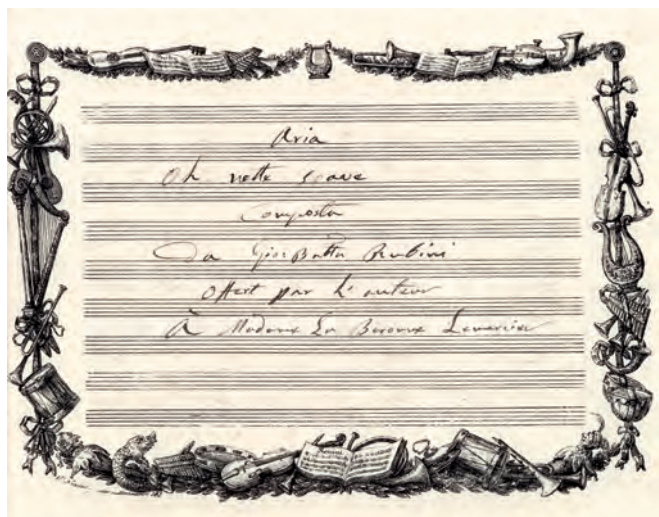 Aria
Oh notte soave
Composta
Da Gio: Batta Rubini
Offert par L'auteur
À Madame La Baronne Lemercier